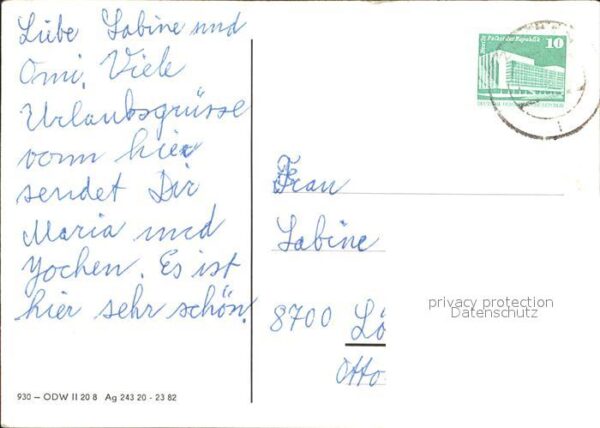 Liebe Sabine und
Omi, Viele
Urlaubsgrüsse
vom hier
sendet Dir
Maria und
Jochen. Es ist
hier sehr schön!
930 – ODW II 20 8 Ag 243 20 - 23 82
Berlin Palast der Republik
10
Frau
Sabine
8700 Lö
Otto
privacy protection
Datenschutz